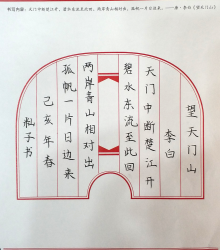 书写内容：天门中断楚江开，碧水东流至此回。两岸青山相对出，孤帆一片日边来。——唐·李白《望天门山》
望天门山
李白
天门中断楚江开
碧水东流至此回
两岸青山相对出
孤帆一片日边来
己亥年春
子书